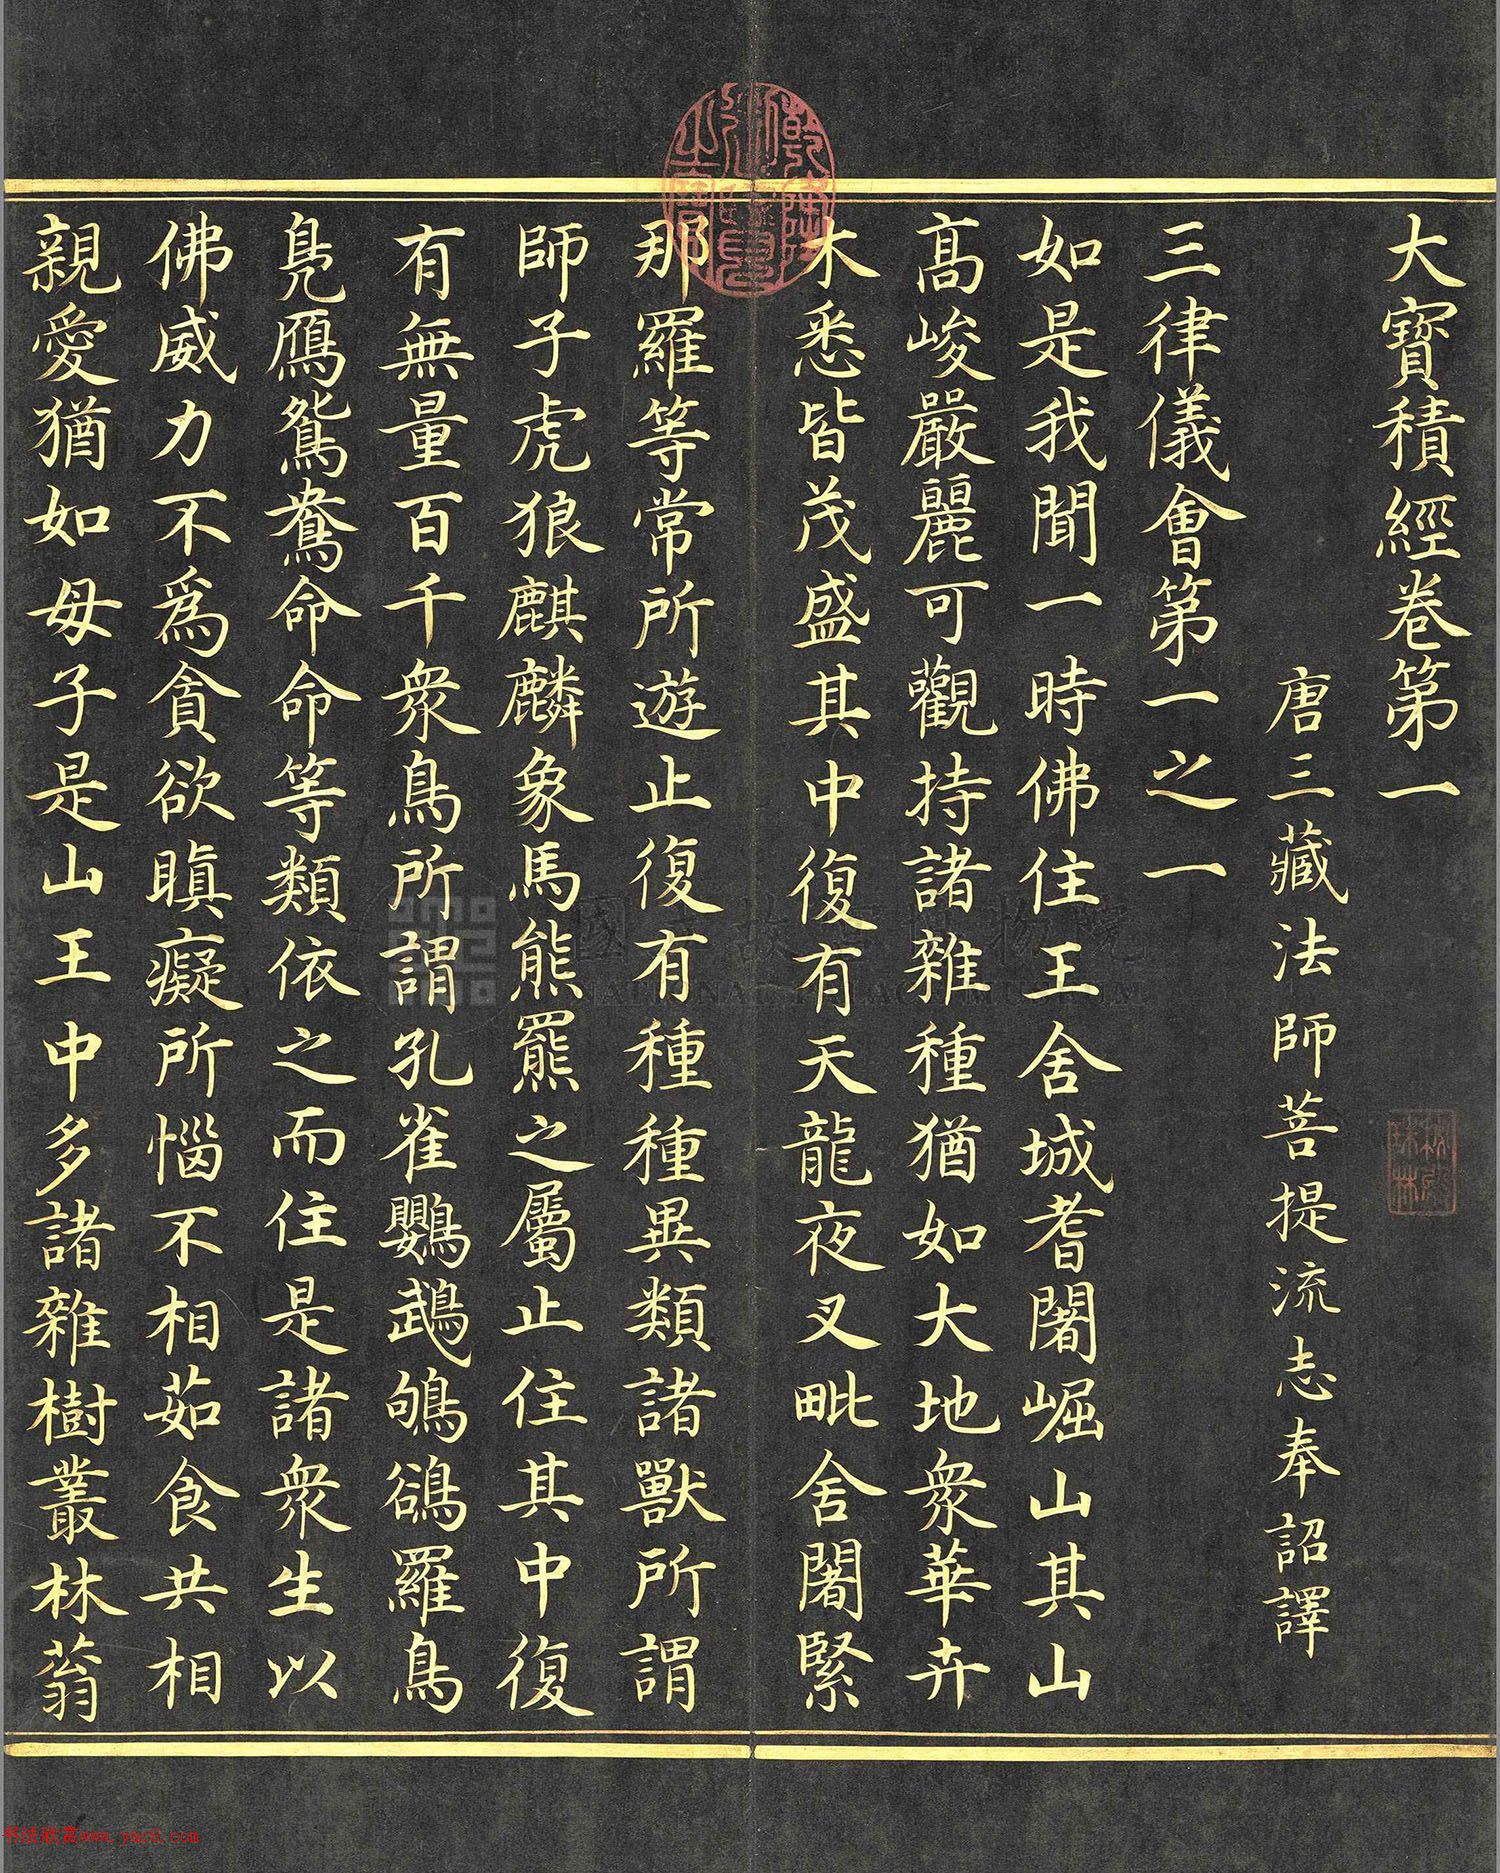 大寶積經卷第一
唐三藏法師菩提流志奉詔譯
三律儀會第一之一
如是我聞一時佛住王舍城耆闍崛山其山
高峻嚴麗可觀持諸雜種猶如大地衆華卉
木悉皆茂盛其中復有天龍夜叉毗舍闍緊
那羅等常所遊止復有種種異類諸獸所謂
師子虎狼麒麟象馬熊羆之屬止住其中復
有無量百千衆鳥所謂孔雀鸚鵡鴝鵒羅鳥
鳧鴈鴛鴦命命等類依之而住是諸衆生以
佛威力不為貪欲瞋癡所惱不相茹食共相
親愛猶如母子是山王中多諸雜樹叢林蓊
乾隆御覽之寶
國立故宮博物院
NATIONAL PALACE MUSEUM
书法欣赏www.yac8.com